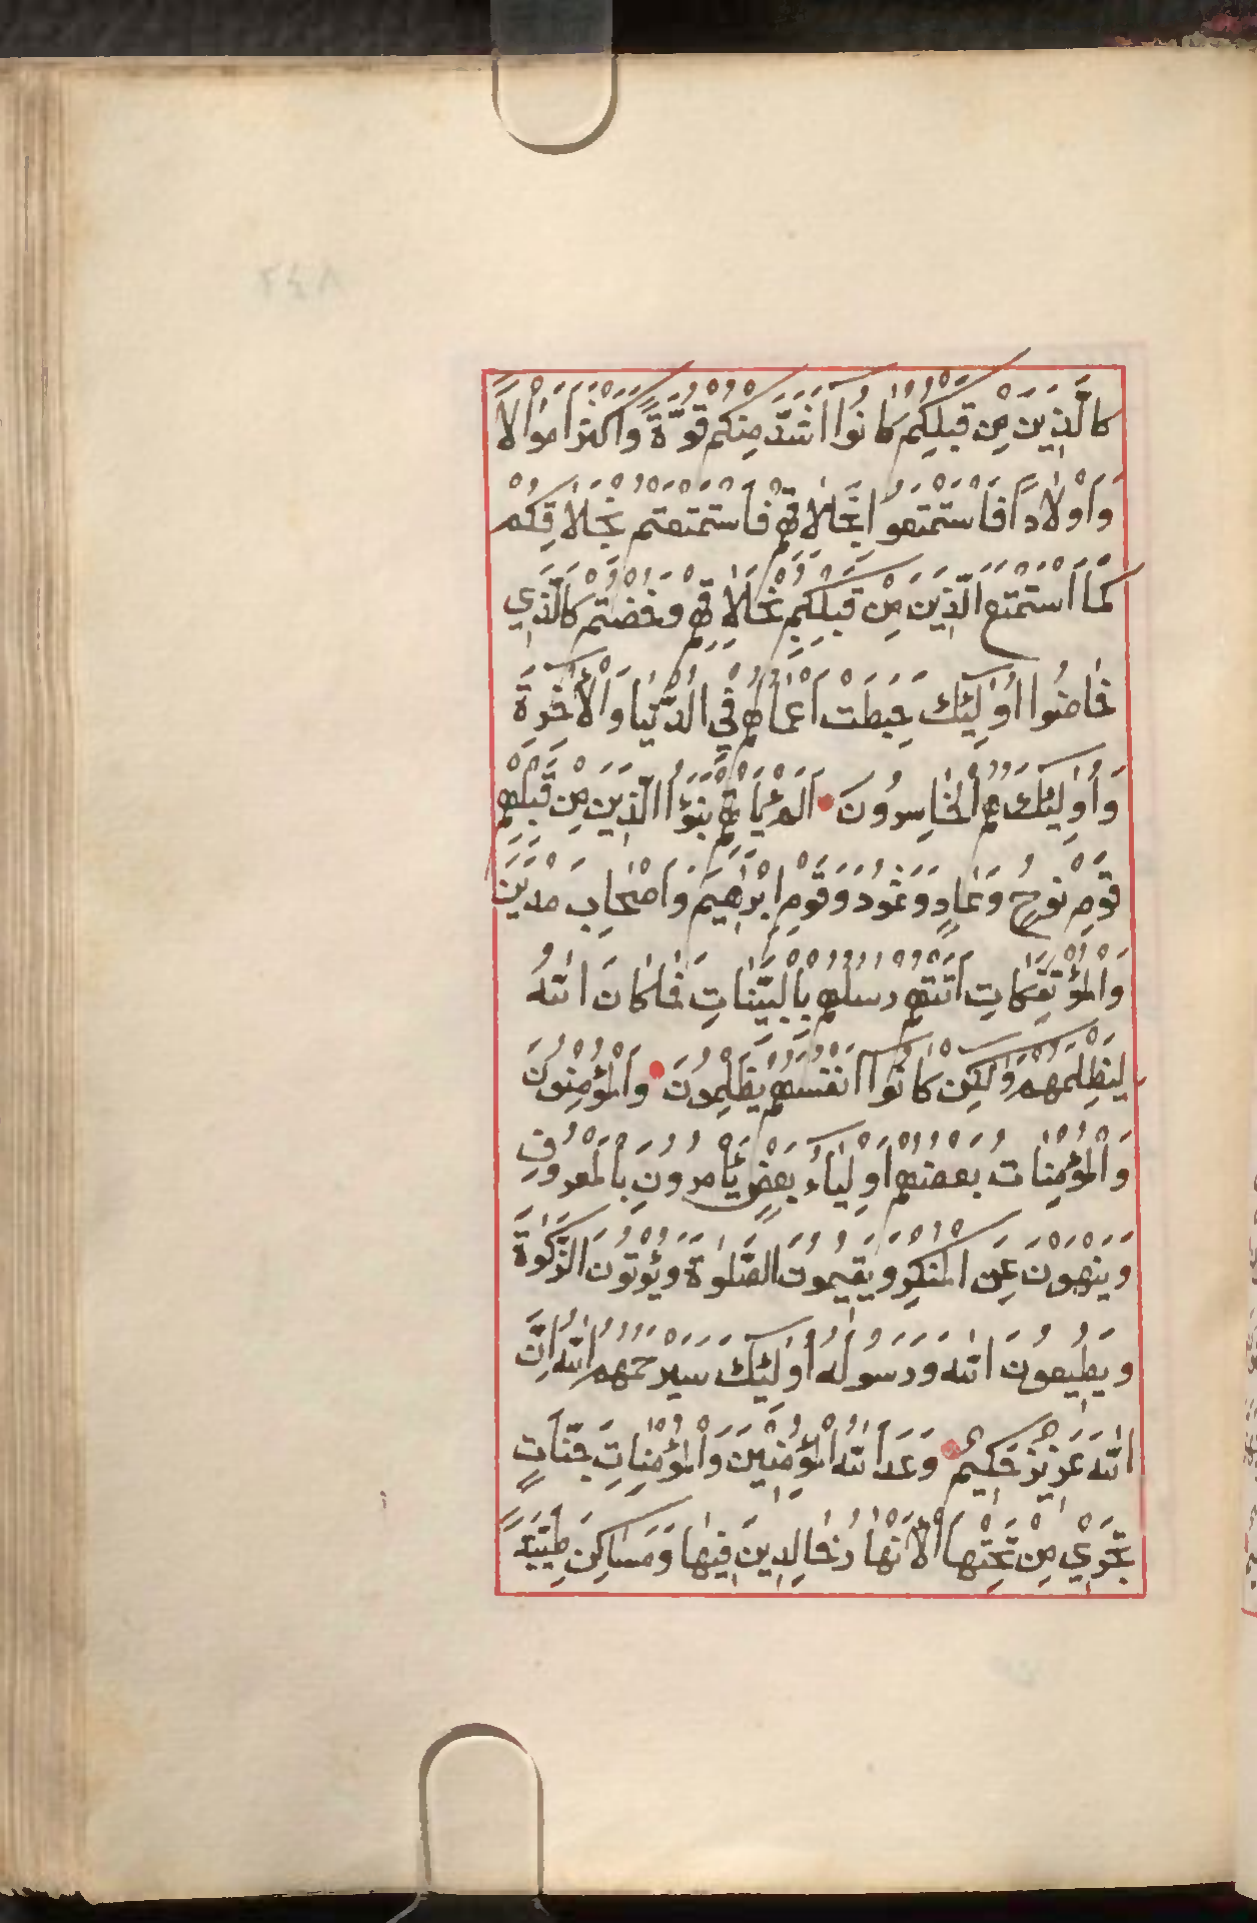 كَالَّذِينَ مِنْ قَبْلِكُمْ كَانُوا أَشَدَّ مِنْكُمْ قُوَّةً وَأَكْثَرَ أَمْوَالًا
وَأَوْلَادًا فَاسْتَمْتَعُوا بِخَلَاقِهِمْ فَاسْتَمْتَعْتُمْ بِخَلَاقِكُمْ
كَمَا اسْتَمْتَعَ الَّذِينَ مِنْ قَبْلِكُمْ بِخَلَاقِهِمْ وَخُضْتُمْ كَالَّذِي
خَاضُوا أُولَٰئِكَ حَبِطَتْ أَعْمَالُهُمْ فِي الدُّنْيَا وَالْآخِرَةِ
وَأُولَٰئِكَ هُمُ الْخَاسِرُونَ أَلَمْ يَأْتِهِمْ نَبَؤُا الَّذِينَ مِنْ قَبْلِهِمْ
قَوْمِ نُوحٍ وَعَادٍ وَثَمُودَ وَقَوْمِ إِبْرَٰهِيمَ وَأَصْحَابِ مَدْيَنَ
وَالْمُؤْتَفِكَاتِ أَتَتْهُمْ رُسُلُهُمْ بِالْبَيِّنَاتِ فَمَا كَانَ اللَّهُ
لِيَظْلِمَهُمْ وَلَٰكِنْ كَانُوا أَنْفُسَهُمْ يَظْلِمُونَ وَالْمُؤْمِنُونَ
وَالْمُؤْمِنَاتُ بَعْضُهُمْ أَوْلِيَاءُ بَعْضٍ يَأْمُرُونَ بِالْمَعْرُوفِ
وَيَنْهَوْنَ عَنِ الْمُنْكَرِ وَيُقِيمُونَ الصَّلَوٰةَ وَيُؤْتُونَ الزَّكَوٰةَ
وَيُطِيعُونَ اللَّهَ وَرَسُولَهُ أُولَٰئِكَ سَيَرْحَمُهُمُ اللَّهُ إِنَّ
اللَّهَ عَزِيزٌ حَكِيمٌ وَعَدَ اللَّهُ الْمُؤْمِنِينَ وَالْمُؤْمِنَاتِ جَنَّاتٍ
تَجْرِي مِنْ تَحْتِهَا الْأَنْهَارُ خَالِدِينَ فِيهَا وَمَسَاكِنَ طَيِّبَةً